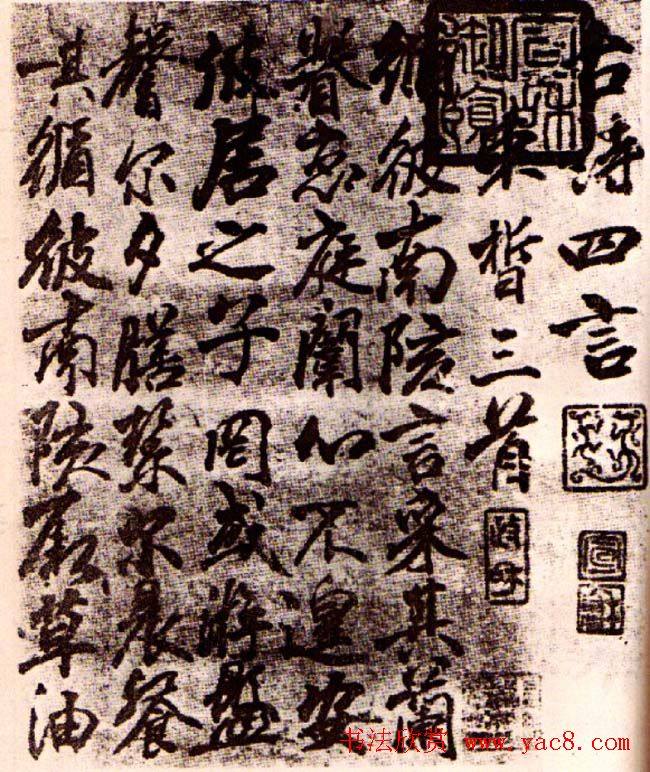 古詩四言
束皙三首
循彼南陔言采其蘭
眷恋庭闈心不遑安
彼居之子罔或游盤
馨尔夕膳絜尔晨餐
其循彼南陔厥草油
政和
宣和
书法欣赏 www.yac8.com